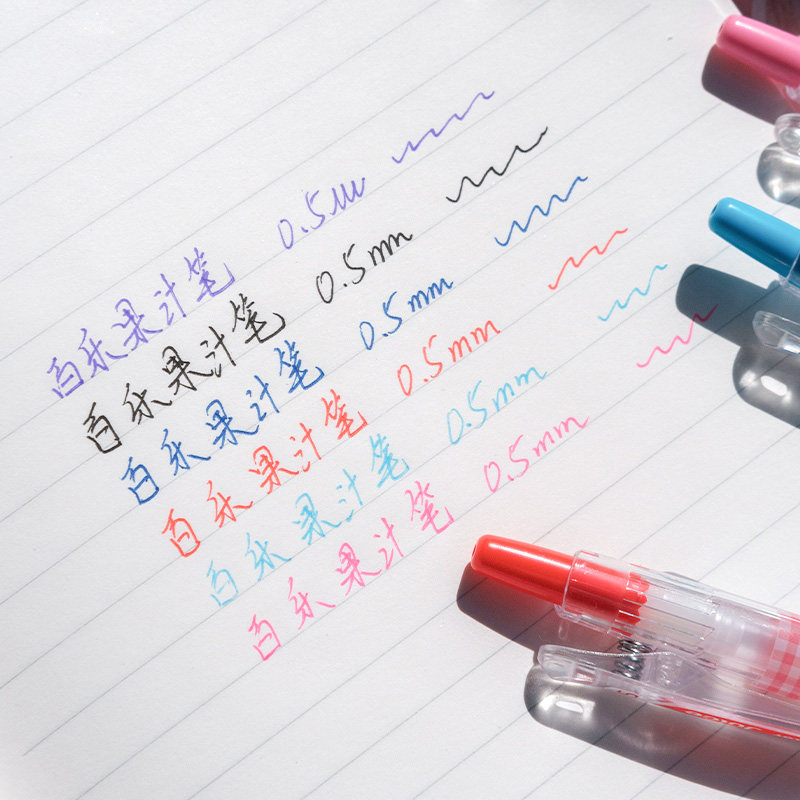 百乐果汁笔 0.5mm
百乐果汁笔 0.5mm
百乐果汁笔 0.5mm
百乐果汁笔 0.5mm
百乐果汁笔 0.5mm
百乐果汁笔 0.5mm